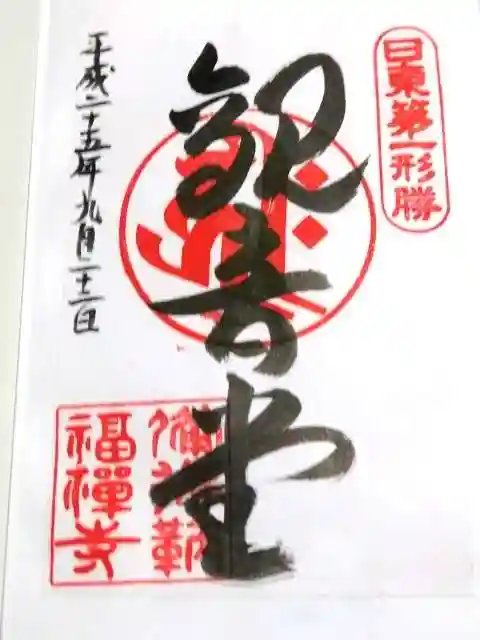 日東第一形勝
観音堂
備後鞆
福禪寺
平成二十五年九月二十二日